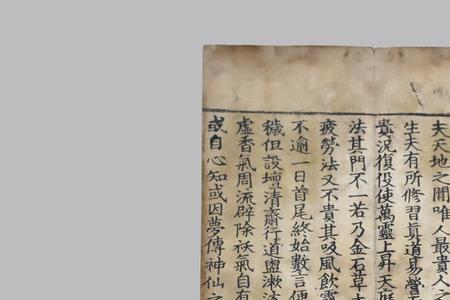 夫天地之間唯人最貴人之
生夫有所修習真道易營
貴況復役使萬靈上昇天
法其門不一若乃金石草
疲勞法又不貴其吸風飲
不逾一日首尾終始數言
穢但設壇清齋行道盥漱
虛香氣周流辟除祅氣自有
或自心知或因夢傳神仙之